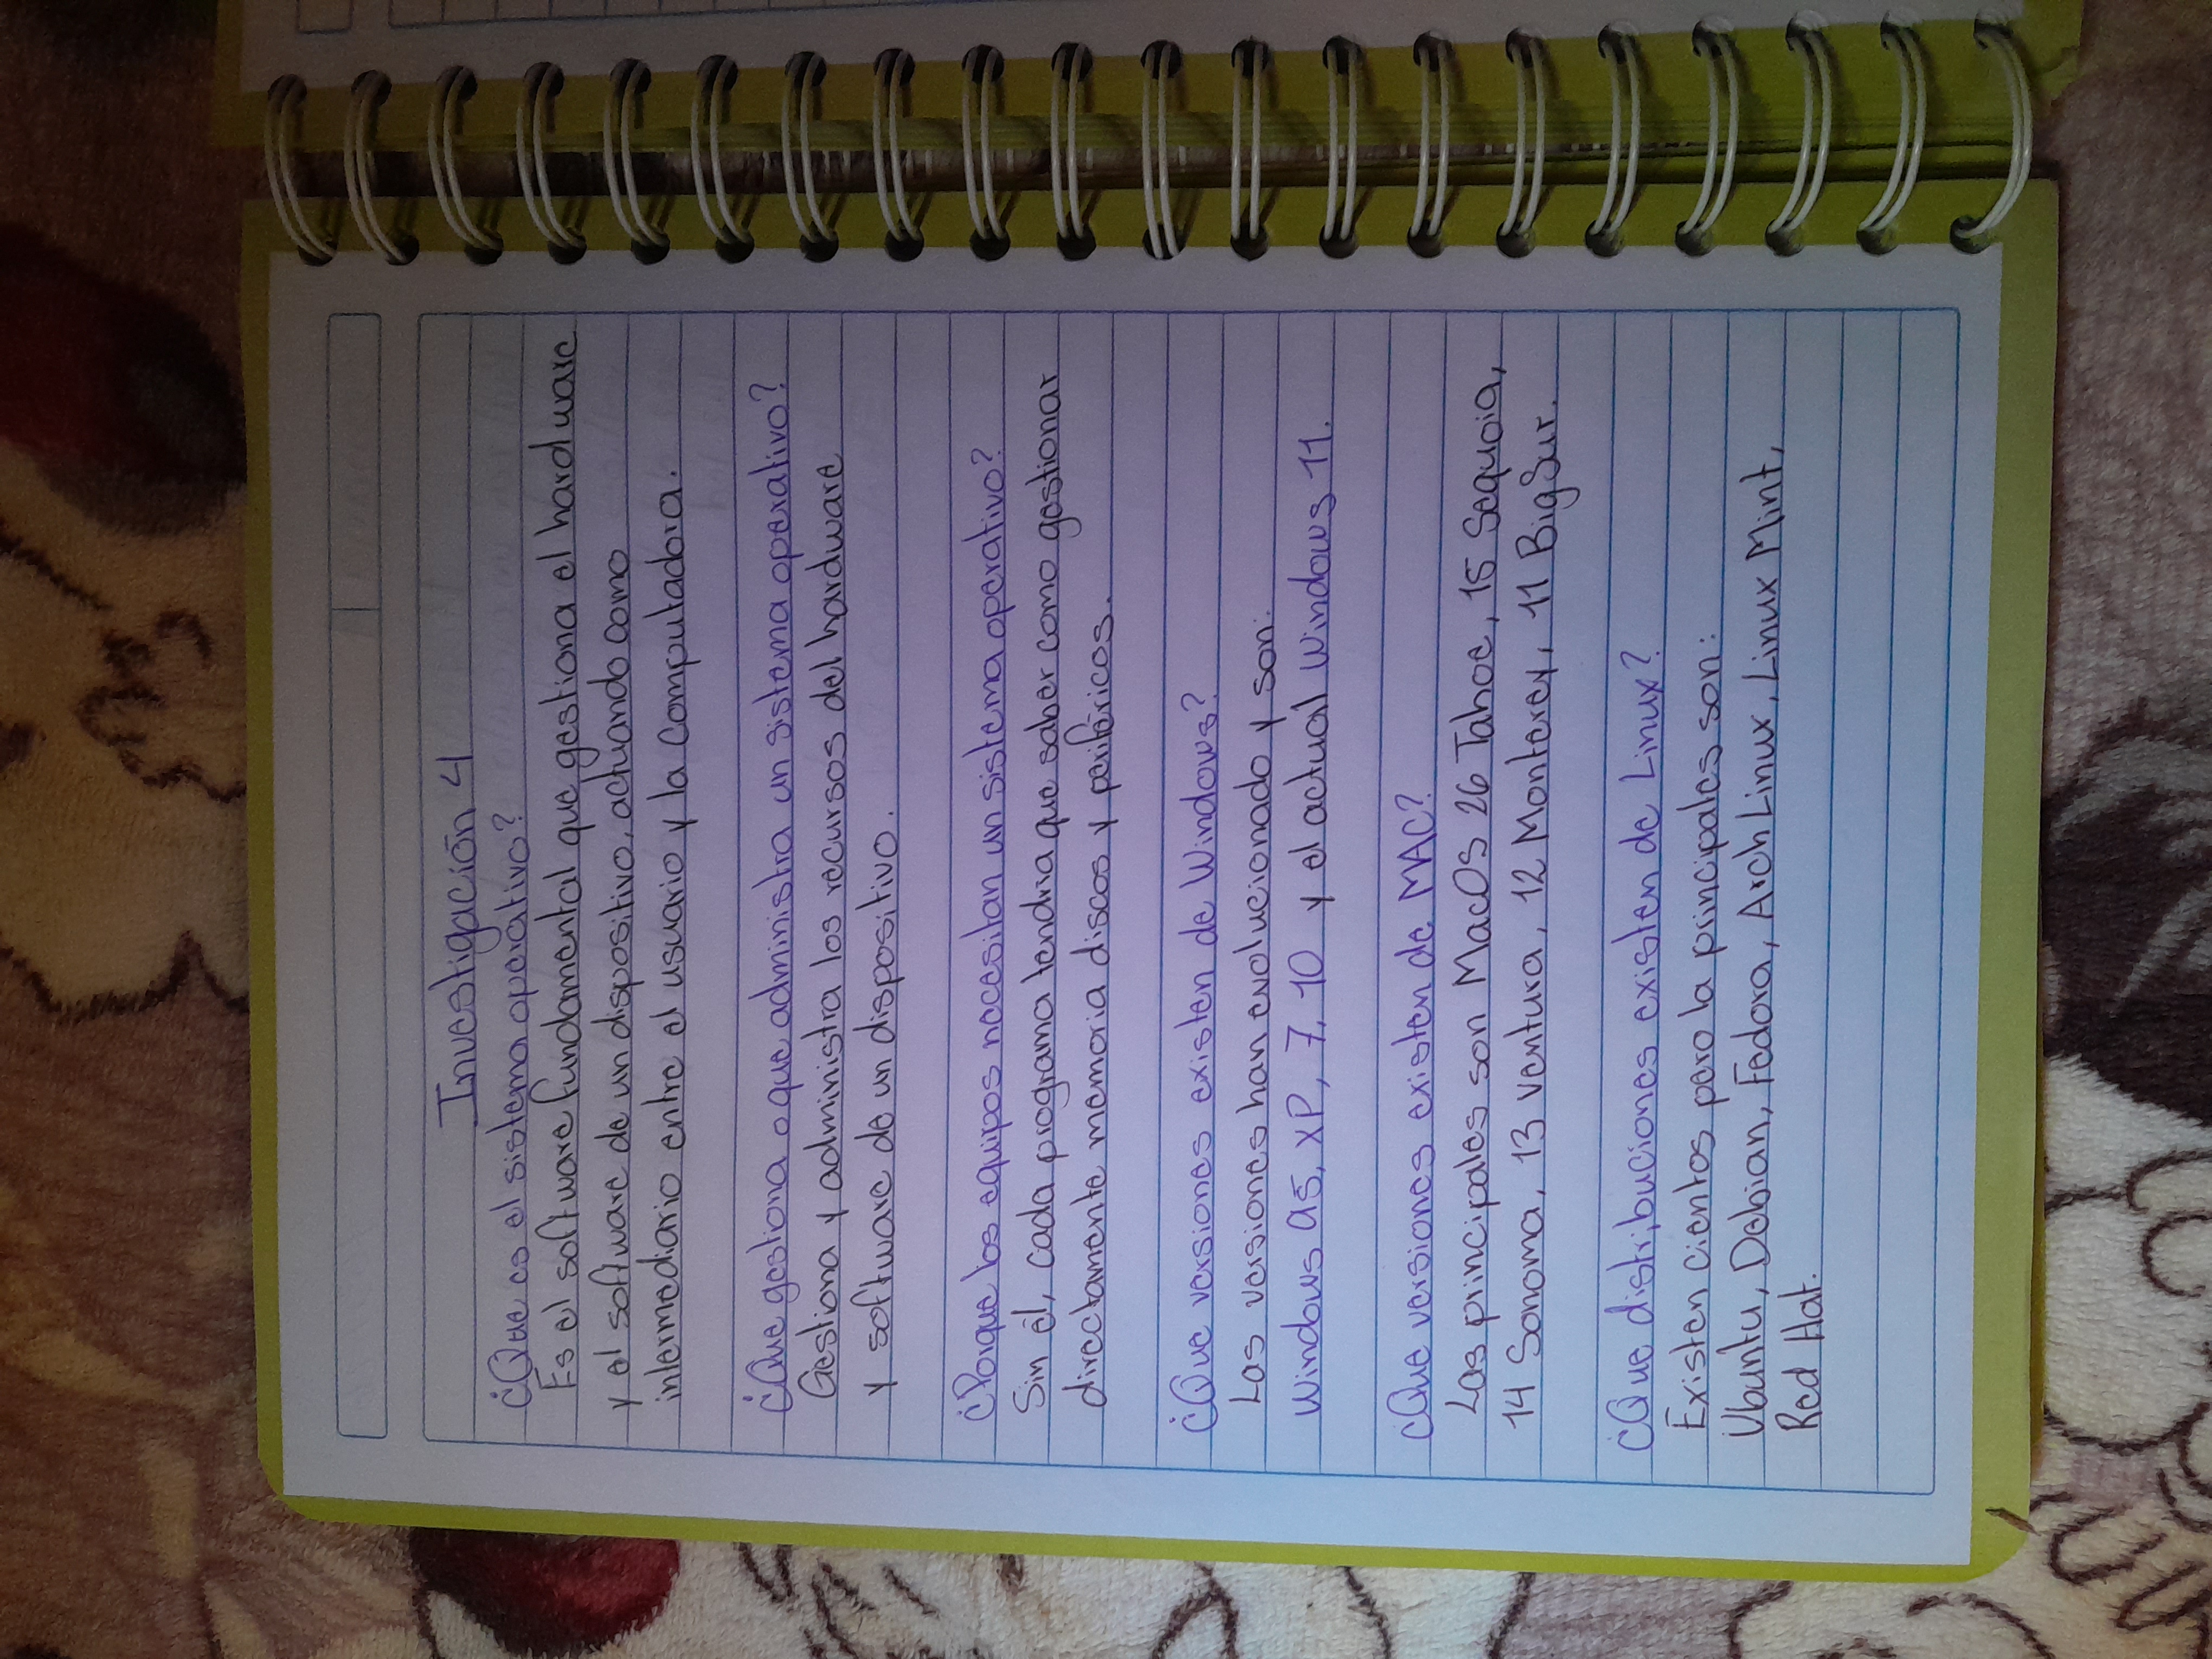 Investigación 4
¿Que es el sistema operativo?
Es el software fundamental que gestiona el hardware
y el software de un dispositivo, actuando como
intermediario entre el usuario y la computadora.
¿Que gestiona o que administra un sistema operativo?
Gestiona y administra los recursos del hardware
y software de un dispositivo.
¿Porque los equipos necesitan un sistema operativo?
Sin él, cada programa tendria que saber como gestionar
directamente memoria discos y periféricos.
¿Que versiones existen de Windows?
Las versiones han evolucionado y son:
Windows 95, XP, 7, 10 y el actual Windows 11.
¿Que versiones existen de MAC?
Las principales son MacOS 26 Tahoe, 15 Sequoia,
14 Sonoma, 13 Ventura, 12 Monterey, 11 Big Sur.
¿Que distribuciones existen de Linux?
Existen cientos pero la principales son:
Ubuntu, Debian, Fedora, Arch Linux, Linux Mint,
Red Hat.